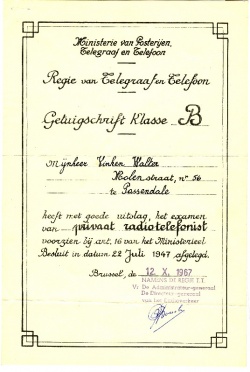 Ministerie van Posterijen,
Telegraaf en Telefoon
Regie van Telegraaf en Telefoon
Getuigschrift Klasse B
Mijnheer Vinken Walter
Molenstraat, n° 56
te Passendale
heeft met goede uitslag, het examen
van privaat radiotelefonist
voorzien bij art. 16 van het Ministerieel
Besluit in datum 22 Juli 1947 afgelegd.
Brussel, de 12. X. 1967
NAMENS DE REGIE T.T.
V. De Administrateur-generaal
De Directeur-generaal